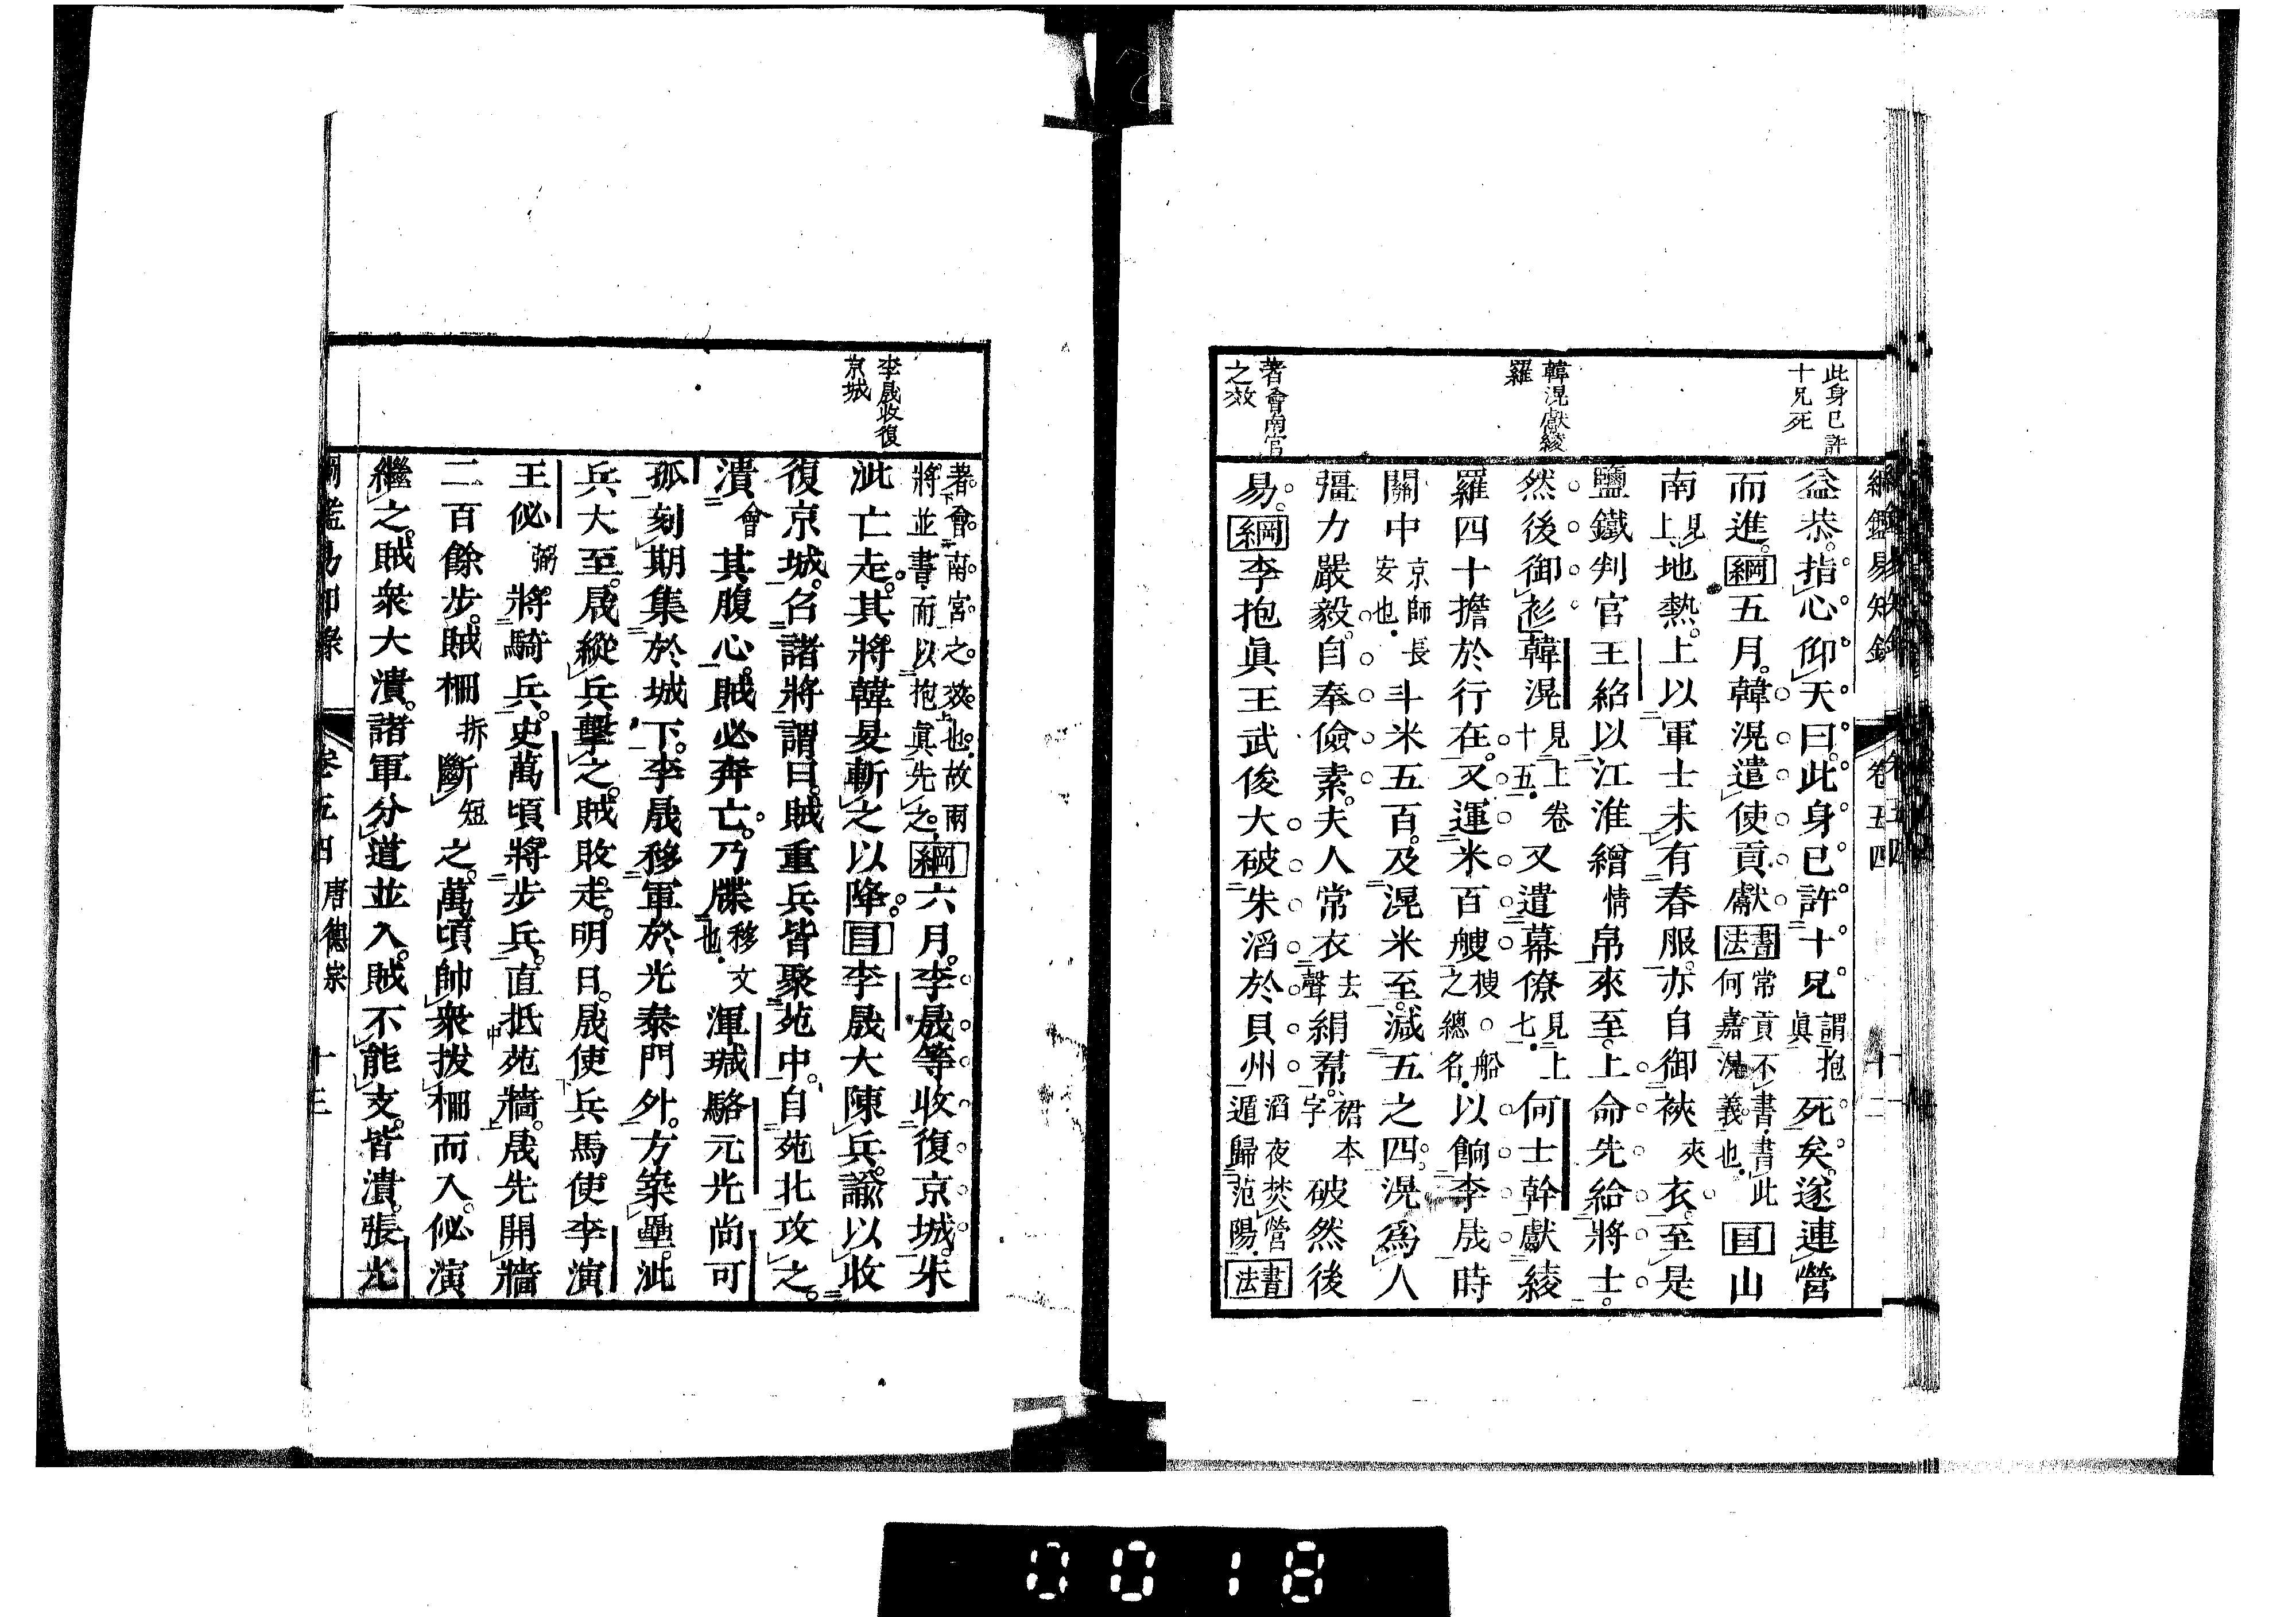 綱鑑易知錄 卷五四 十二
此身已許
十兄死
韓滉獻綾
羅
著會南宮
之效
益恭。指心仰天曰。此身已許十兄。謂抱眞死矣。遂連營
而進。綱五月。韓滉遣使貢獻。書法常貢不書。書此何嘉滉義也。目山
南見上。地熱。上以軍士未有春服。亦自御裌夾衣。至是
鹽鐵判官王紹以江淮繒情帛來至。上命先給將士。
然後御衫。韓滉見上卷十五。又遣幕僚見上七。何士幹獻綾
羅四十擔於行在。又運米百艘梭。船之總名。以餉李晟。時
關中京師長安也。斗米五百。及滉米至。減五之四。滉爲人
彊力嚴毅。自奉儉素。夫人常衣去聲絹帬。裙本字破然後
易。綱李抱眞王武俊大破朱滔於貝州。滔夜焚營遁歸范陽。書法
李晟收復
京城
著會南宮之效也。故兩將並書而以抱眞先之。綱六月。李晟等收復京城。朱
泚亡走。其將韓旻斬之以降。目李晟大陳兵。諭以收
復京城。召諸將謂曰。賊重兵皆聚苑中。自苑北攻之。
潰會其腹心。賊必奔亡。乃牒移文也。渾瑊駱元光尚可
孤。刻期集於城下。李晟移軍於光泰門外。方築壘。泚
兵大至。晟縱兵擊之。賊敗走。明日。晟使兵馬使李演
王佖弼。將騎兵。史萬頃將步兵。直抵苑牆。晟先開牆
二百餘步。賊柵拆斷短之。萬頃帥衆拔柵而入。佖演
繼之。賊衆大潰。諸軍分道並入。賊不能支。皆潰。張光
綱鑑易知錄 卷五四 唐德宗 十三
0018